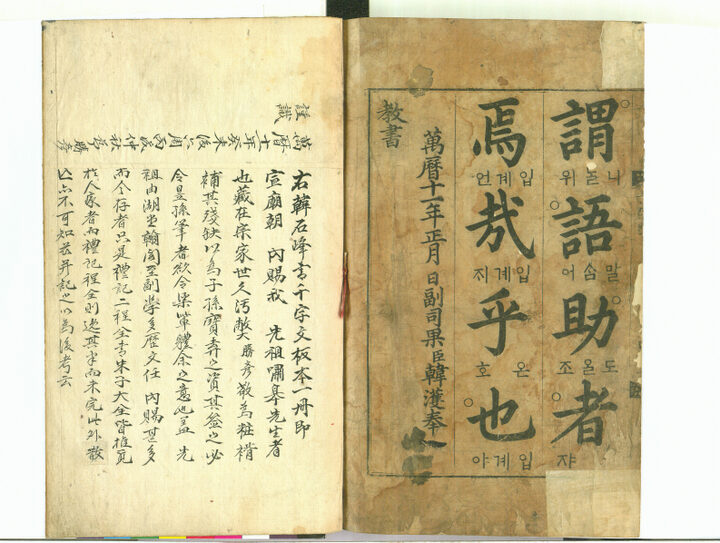 謂語助者
니놀 위
말솜 어
도올 조
쟈
焉哉乎也
입계 언
입계 지
온 호
입계 야
萬曆十一年正月 日副司果臣韓濩奉
教書
右韓石峰書千字文板本一冊即
宣廟朝 內賜我 先祖嘯皐先生者
也藏在宗家世久污敝勝彦敬爲粧褙
補其殘缺以爲子孫寶弆之資其簽之必
令昱孫筆者欲令渠輩體余之意也盖 先
祖由湖堂翰閣至副學多歷文任 內賜甚多
而今存者只是禮記二程全書朱子大全皆推覓
於人家者而禮記程全則逸其半而未完此外散
亡亦不可知茲幷記之以爲後考云
萬曆十一年癸未後六周丙辰仲秋勝彦
謹識